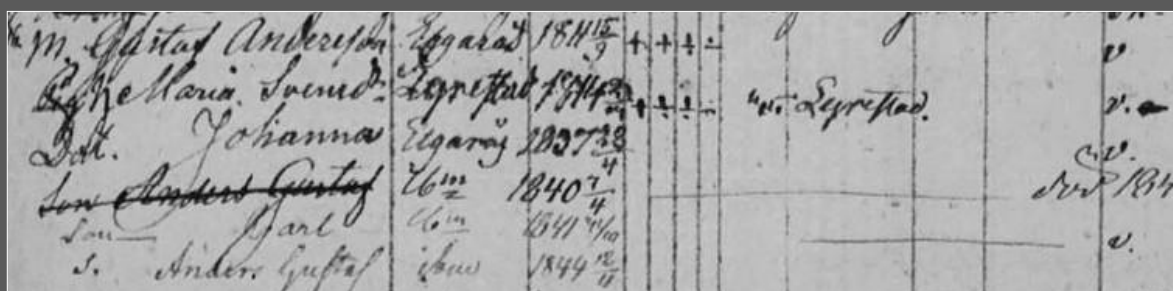 M. Gustaf Andersson Elgarås 1811 15/9 v
Maria Svensd: Legrestad 18 Legrestad. v.
Dot. Johanna Elgarås 1837 28/4 v.
Son Anders Gustaf Ibm 1840 7/4 död 184
Son Karl Ibm 1841 v.
S. Anders Gustaf ibm 1844 12/11